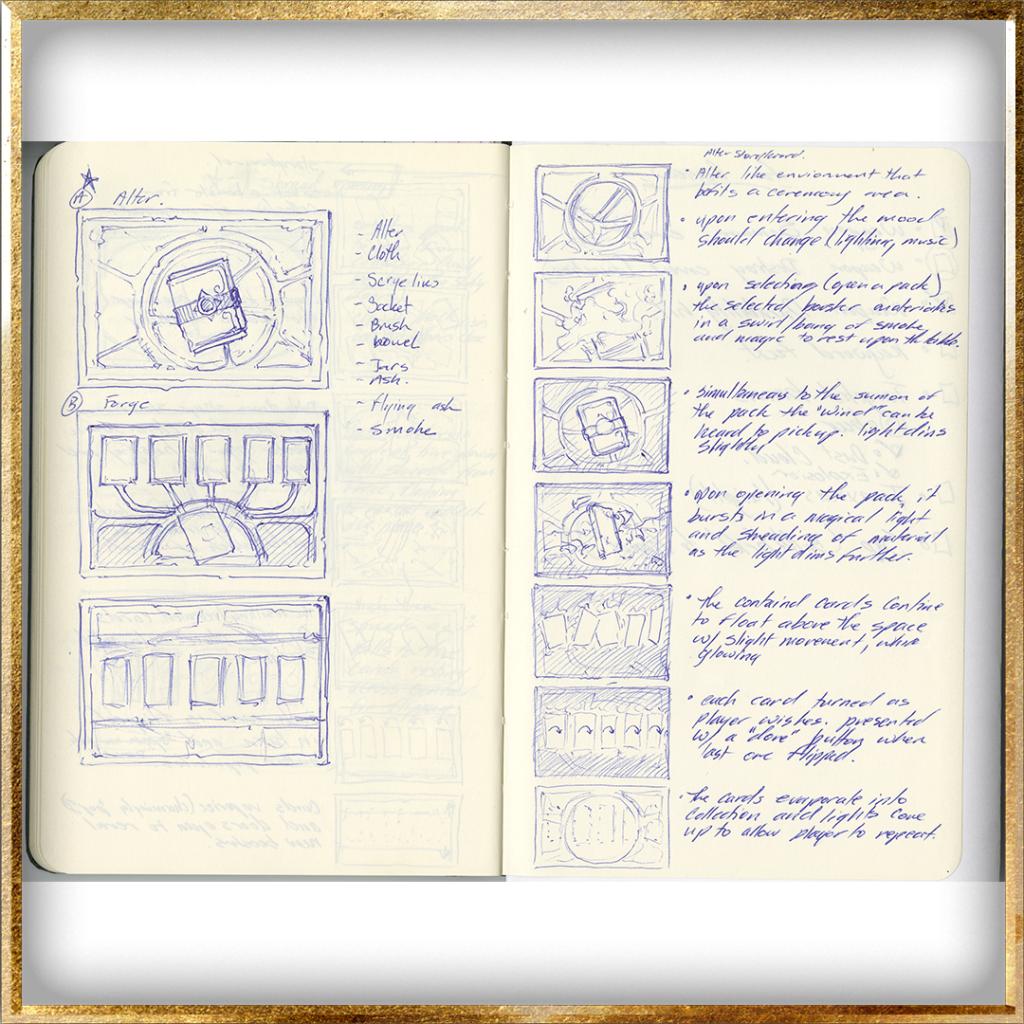 A Alter.
- Alter
- Cloth
- Socket
- Brush
- bowel
- Jars
- Ash.
- Flying ash
- Smoke
B Forge
Alter Storyboard.
• Alter like envionment that
fits a ceremony area.
• upon entering the mood
should change (lighting, music)
• upon selecting (open a pack)
the selected booster materializes
in a swirl/bang of smoke
and magic to rest upon the table.
• simultaneous to the summon of
the pack the "wind" can be
heard to pick up. light dims
slightly
• upon opening the pack, it
bursts in a magical light
and shreading of material
as the light dims further.
• the containd cards contine
to float above the space
w/ slight movement, while
glowing
• each card turned as
player wishes. presented
w/ a "done" button when
last one flipped.
• the cards evaporate into
collection and lights come
up to allow player to repeat.